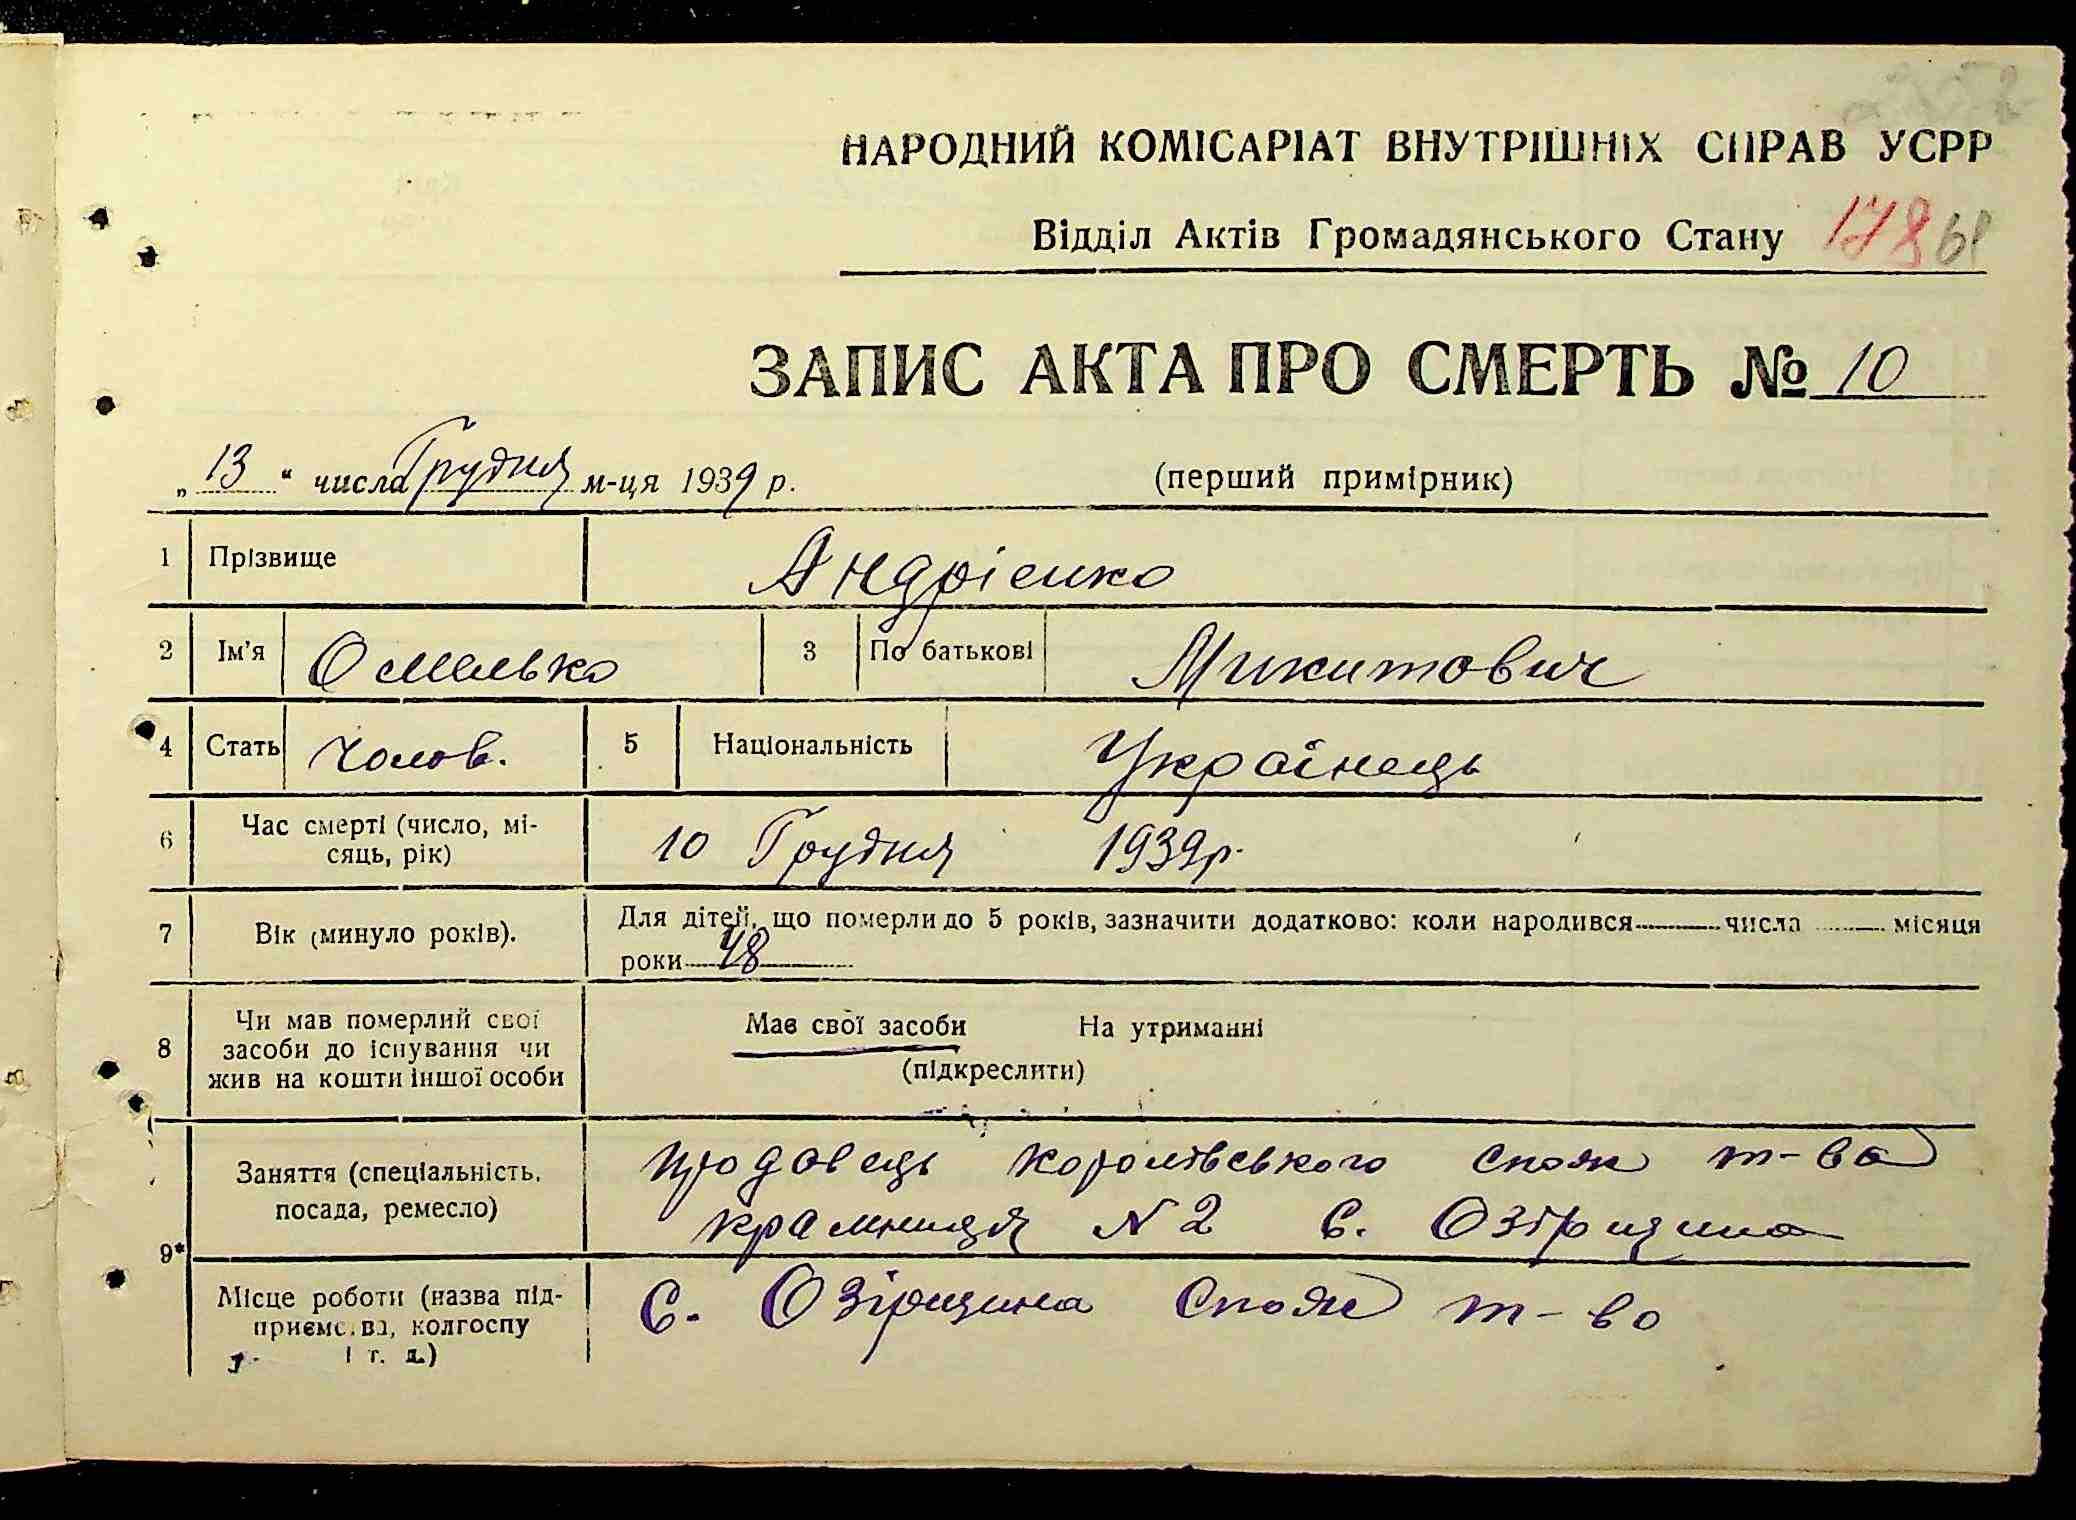 НАРОДНИЙ КОМІСАРІАТ ВНУТРІШНІХ СПРАВ УСРР
Відділ Актів Громадянського Стану 178 61
ЗАПИС АКТА ПРО СМЕРТЬ № 10
„ 13 “ числа Грудня м-ця 1939 р. (перший примірник)
1 Прізвище Андрієнко
2 Ім'я Омелько 3 По батькові Микитович
4 Стать Чолов. 5 Національність Українець
6 Час смерті (число, мі-
сяць, рік) 10 Грудня 1939 р.
7 Вік (минуло років). Для дітей, що померли до 5 років, зазначити додатково: коли народився числа місяця
роки 48
8 Чи мав померлий свої
засоби до існування чи
жив на кошти іншої особи
Має свої засоби На утриманні
(підкреслити)
9* Заняття (спеціальність,
посада, ремесло)
продовець королівського спож т-ва
крамниця N 2 с. Озірщина
Місце роботи (назва під-
приємства, колгоспу
і т. д.)
С. Озірщина Спож т-во